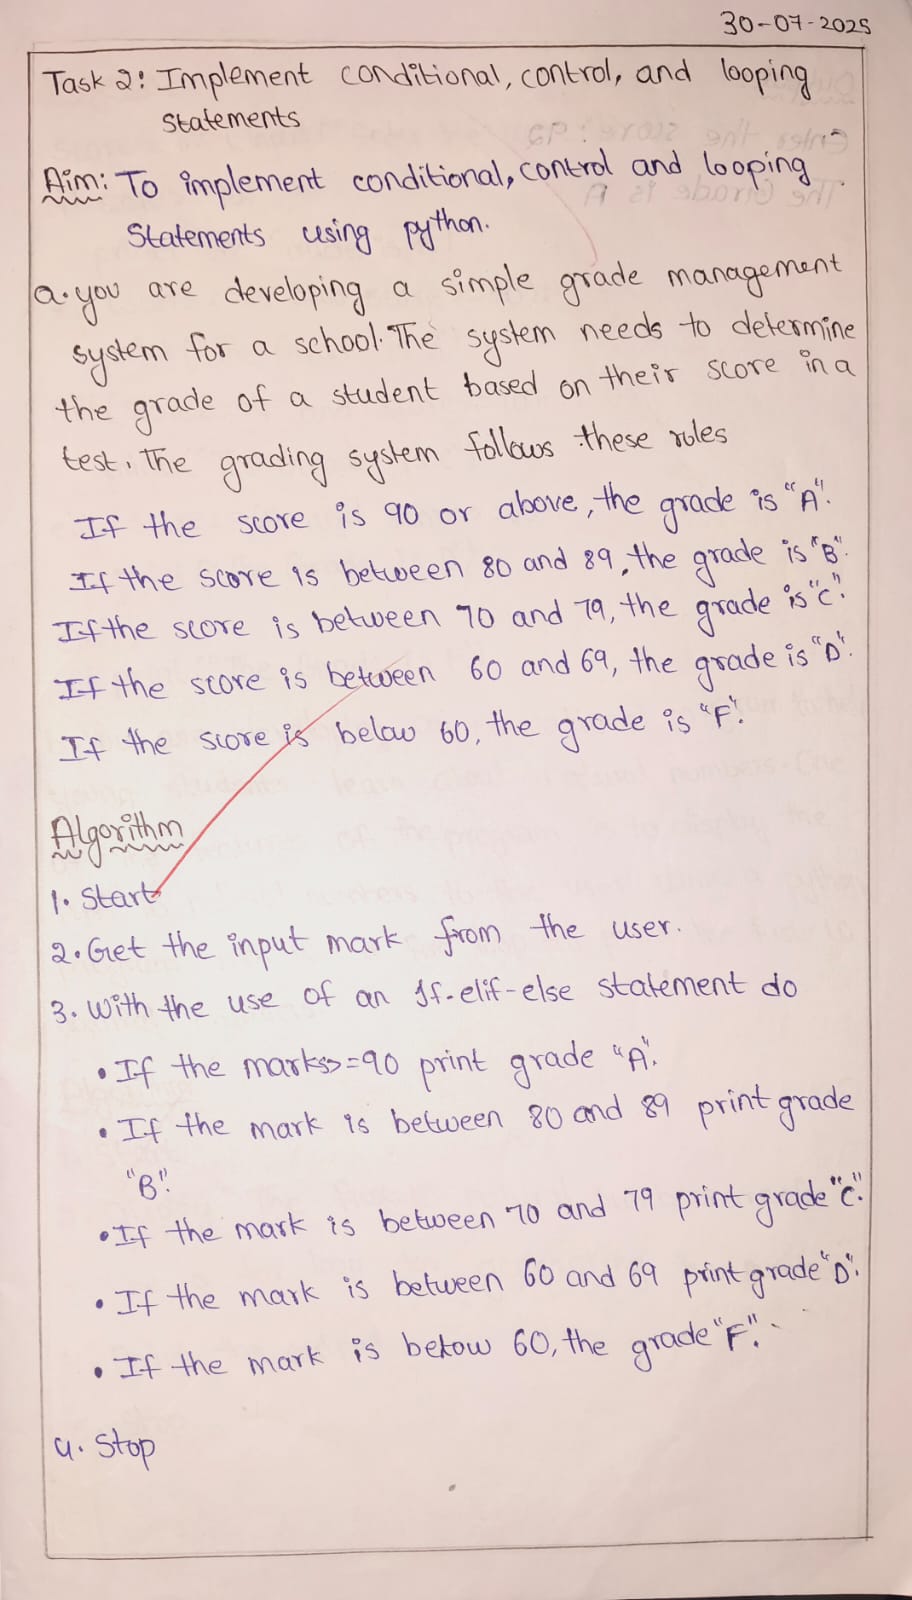 30-07-2025
Task 2: Implement conditional, control, and looping
Statements
Aim: To implement conditional, control and looping
Statements using python.
a. you are developing a simple grade management
system for a school. The system needs to determine
the grade of a student based on their score in a
test. The grading system follows these rules
If the score is 90 or above, the grade is "A".
If the score is between 80 and 89, the grade is "B".
If the score is between 70 and 79, the grade is "C".
If the score is between 60 and 69, the grade is "D".
If the score is below 60, the grade is "F".
Algorithm
1. Start
2. Get the input mark from the user.
3. With the use of an If-elif-else statement do
• If the marks>=90 print grade "A".
• If the mark is between 80 and 89 print grade
"B".
• If the mark is between 70 and 79 print grade "C".
• If the mark is between 60 and 69 print grade "D".
• If the mark is below 60, the grade "F".
4. Stop